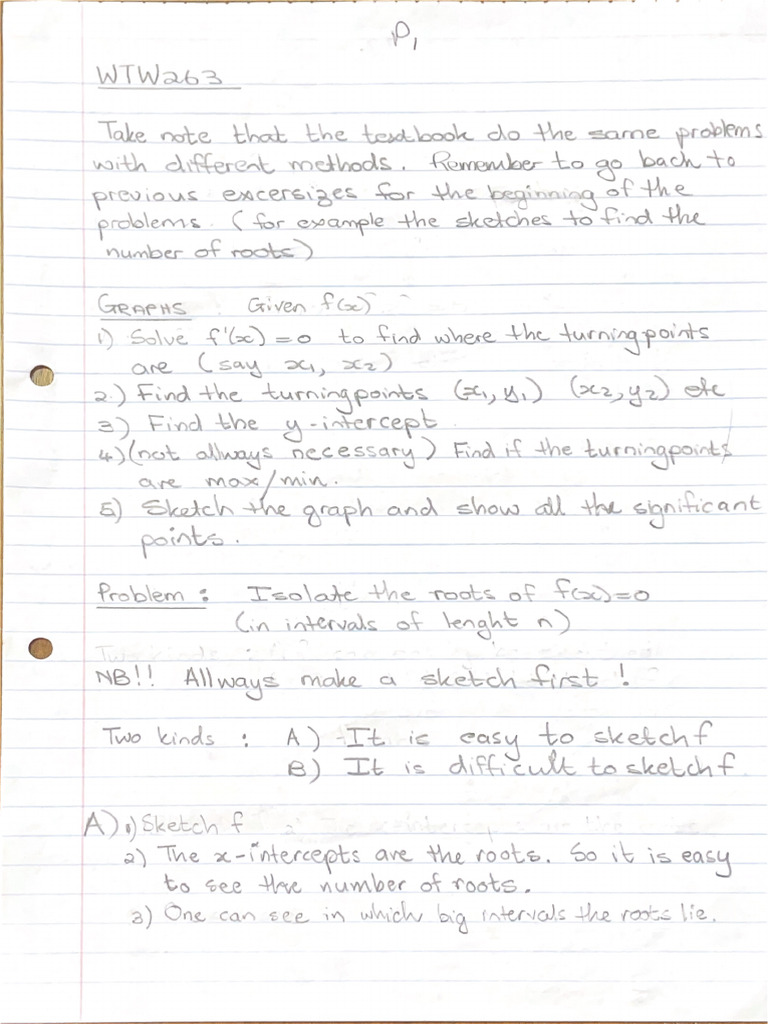 P1
WTW263
Take note that the textbook do the same problems
with different methods. Remember to go back to
previous excersizes for the beginning of the
problems. (for example the sketches to find the
number of roots)
GRAPHS Given f(x)
1) Solve f'(x) = 0 to find where the turningpoints
are (say x₁, x₂)
2.) Find the turningpoints (x₁, y₁) (x₂, y₂) etc
3) Find the y-intercept
4.) (not allways necessary) Find if the turningpoints
are max/min.
5) Sketch the graph and show all the significant
points.
Problem : Isolate the roots of f(x)=0
(in intervals of lenght n)
NB!! Allways make a sketch first !
Two kinds : A) It is easy to sketch f
B) It is difficult to sketch f
A) 1) Sketch f
2) The x-intercepts are the roots. So it is easy
to see the number of roots.
3) One can see in which big intervals the roots lie.